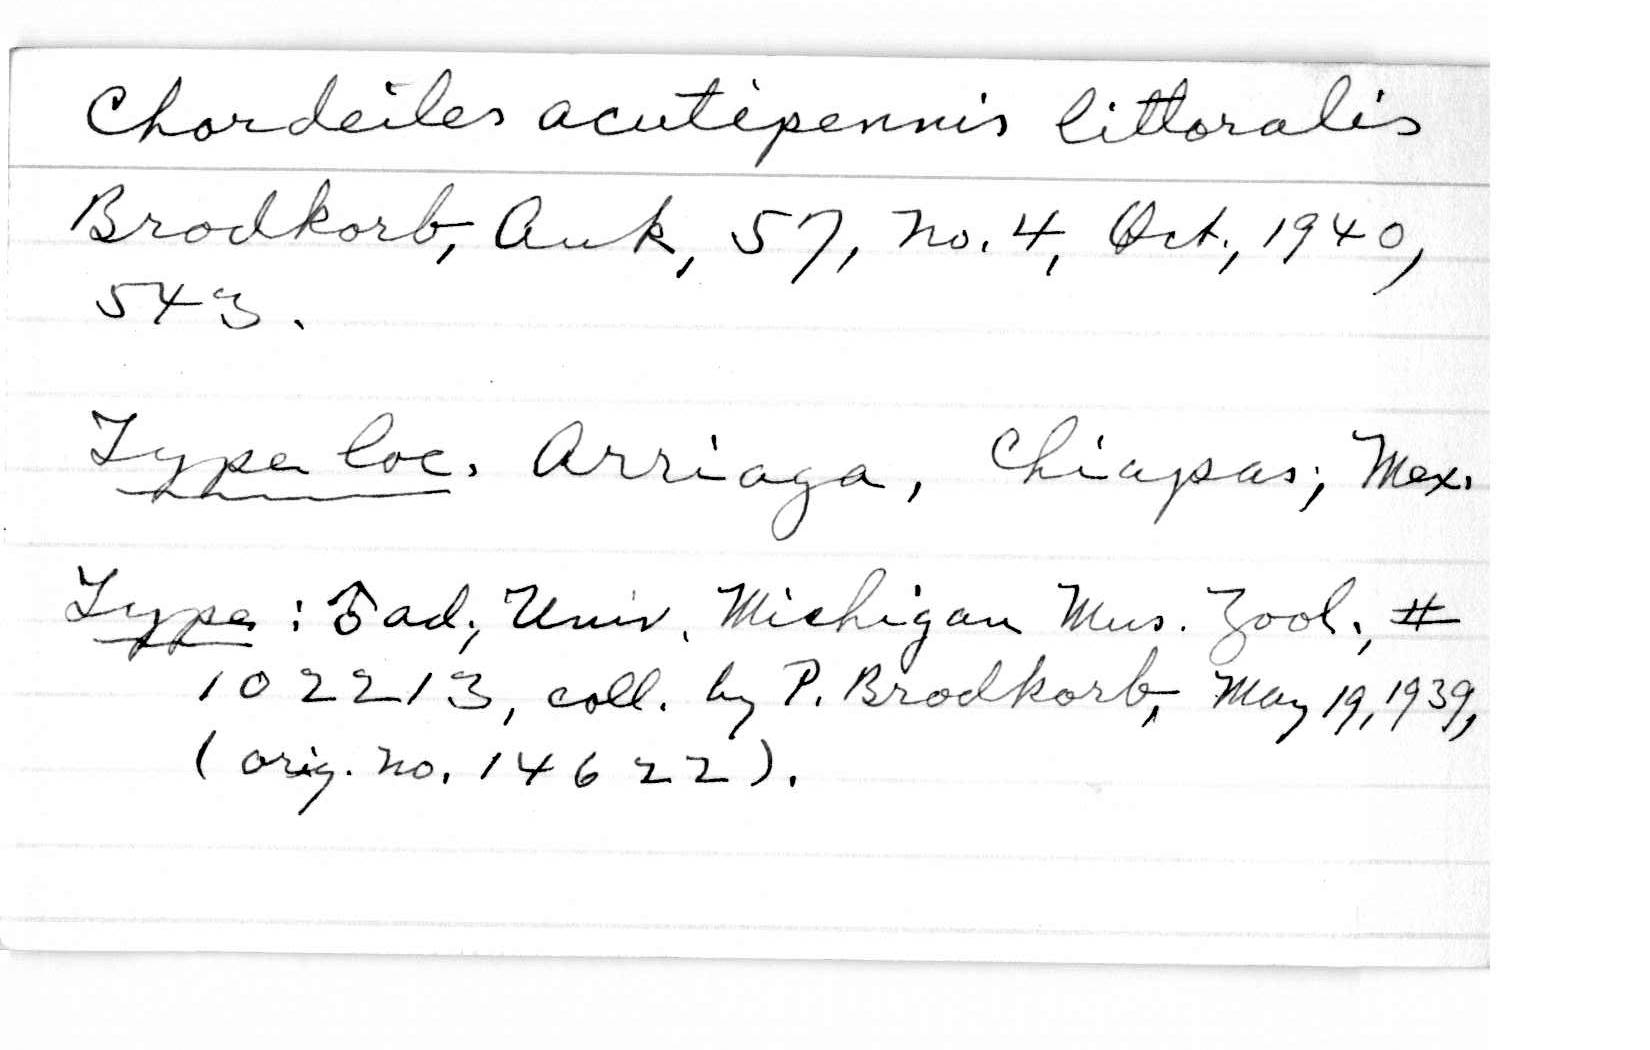 Chordeiles acutipennis littoralis
Brodkorb, Auk, 57, no. 4, Oct., 1940,
543.
Type loc. Arriaga, Chiapas, Mex.
Type : ♂ ad., Univ. Michigan Mus. Zool., #
102213, coll. by P. Brodkorb, May 19, 1939,
(orig. no. 14622).